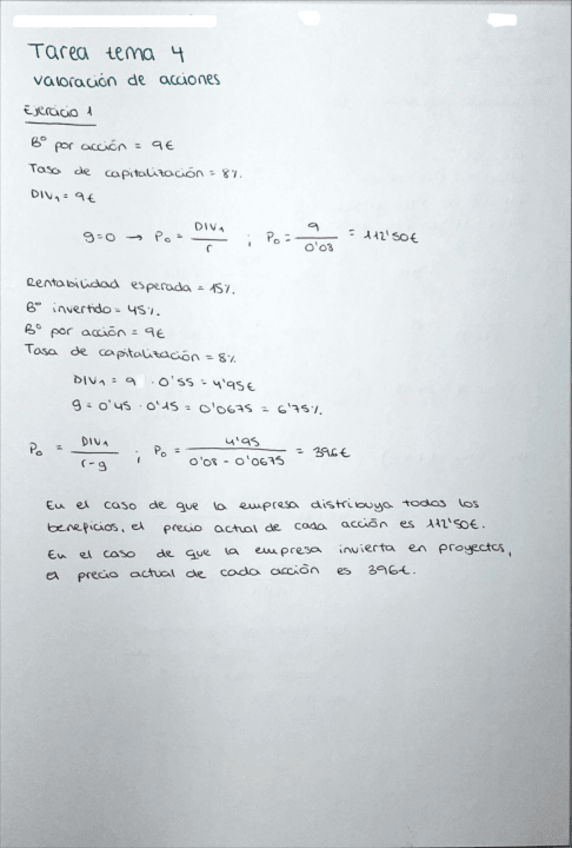 Tarea tema 4
valoración de acciones
Ejercicio 1
Bº por acción = 9€
Tasa de capitalización = 8%.
DIV₁ = 9€
g=0 → P₀ = DIV₁/r ; P₀ = 9/0'08 = 112'50€
Rentabilidad esperada = 15%.
Bº invertido = 45%.
Bº por acción = 9€
Tasa de capitalización = 8%
DIV₁ = 9 · 0'55 = 4'95€
g = 0'45 · 0'15 = 0'0675 = 6'75%.
P₀ = DIV₁/r-g ; P₀ = 4'95/0'08 - 0'0675 = 396€
En el caso de que la empresa distribuya todos los
beneficios, el precio actual de cada acción es 112'50€.
En el caso de que la empresa invierta en proyectos,
el precio actual de cada acción es 396€.